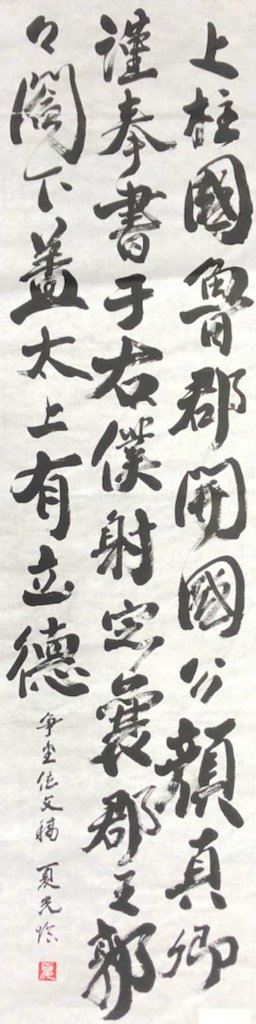 上柱國魯郡開國公顏真卿
謹奉書于右僕射定襄郡王郭
公閤下盖太上有立德
争坐位文稿 夏光